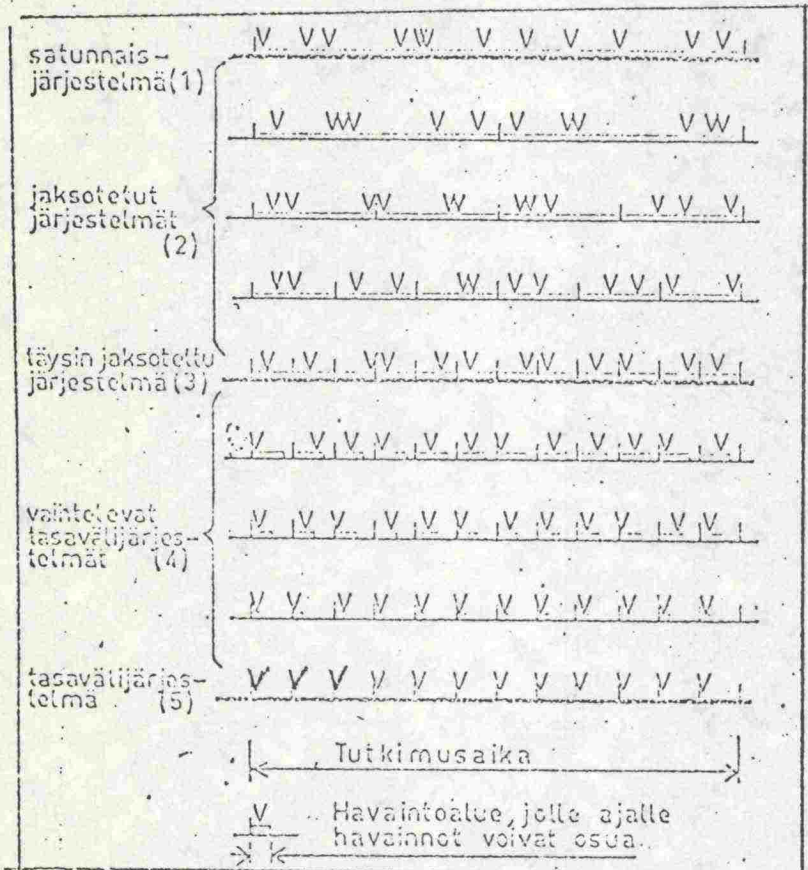 V V V V W V V V V V V
satunnais-
järjestelmä (1)
V W V V V V W V W
V V V V W W V V V V
jaksotetut
järjestelmät
(2)
V V V V W V V V V V V
täysin jaksotettu
järjestelmä (3)
V V V V V V V V V V V V
V V V V V V V V V V V V
vaihtelevat
tasavälijärjes-
telmät (4)
V V V V V V V V V V V V
V V V V V V V V V V V V
tasavälijärjes-
telmä (5)
V V V V V V V V V V V V
Tutkimusaika
V
Havaintoalue, jolle ajalle
havainnot voivat osua